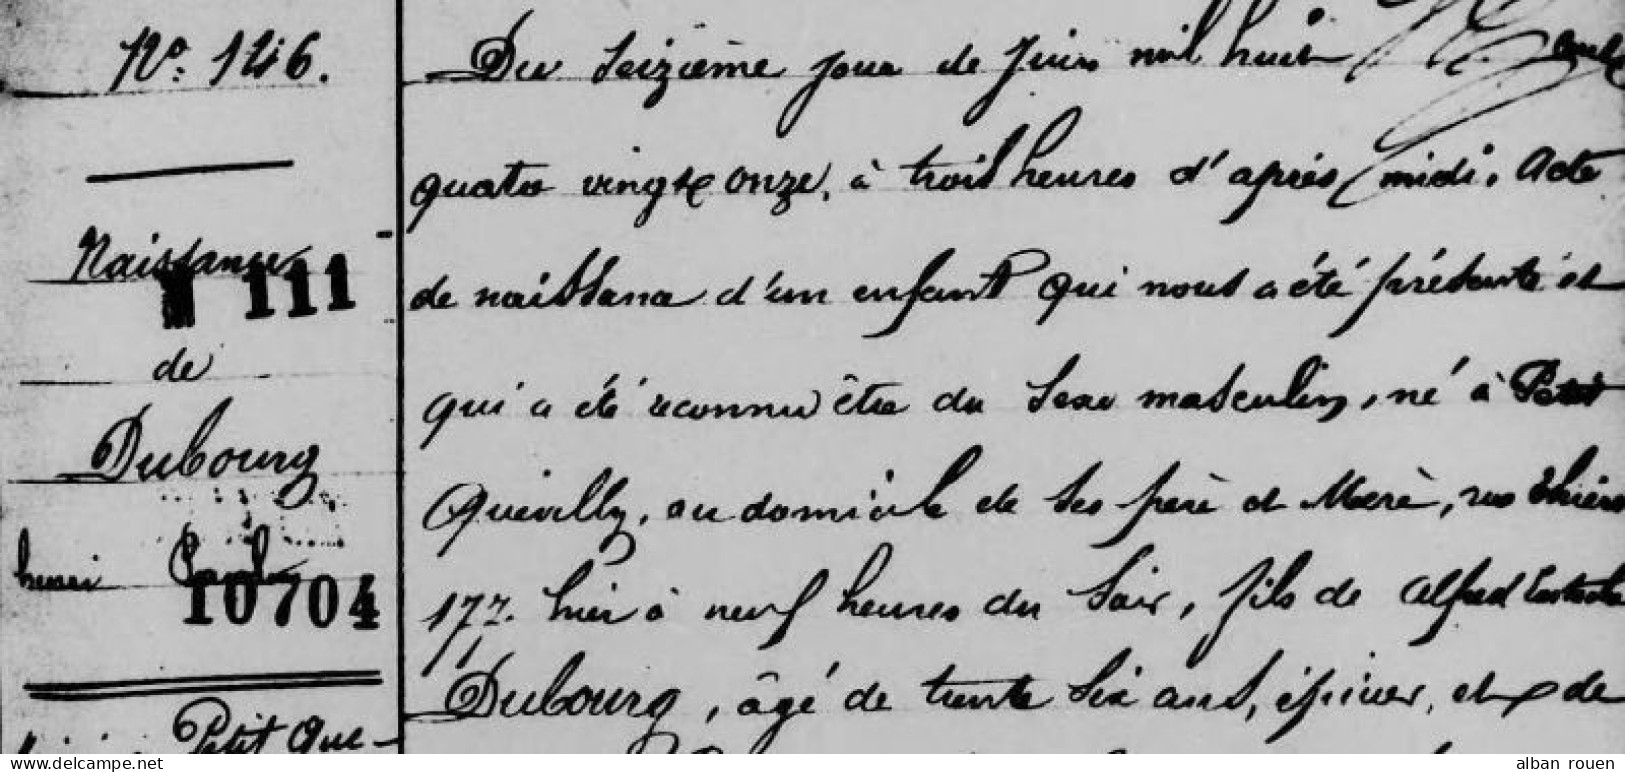 N°. 146.
Naissance
111
de
Dubourg
henri Paul
10704
Petit Que-
Du Seizième jour de Juin mil huit
quatre vingt onze, à trois heures d'après midi. Acte
de naissance d'un enfant qui nous a été présenté et
qui a été reconnu être du sexe masculin, né à Petit
Quevilly, au domicile de ses père et Mère, rue thiers
177. hier à neuf heures du soir, fils de alfred
Dubourg, âgé de trente six ans, épicier, et de
www.delcampe.net
alban rouen